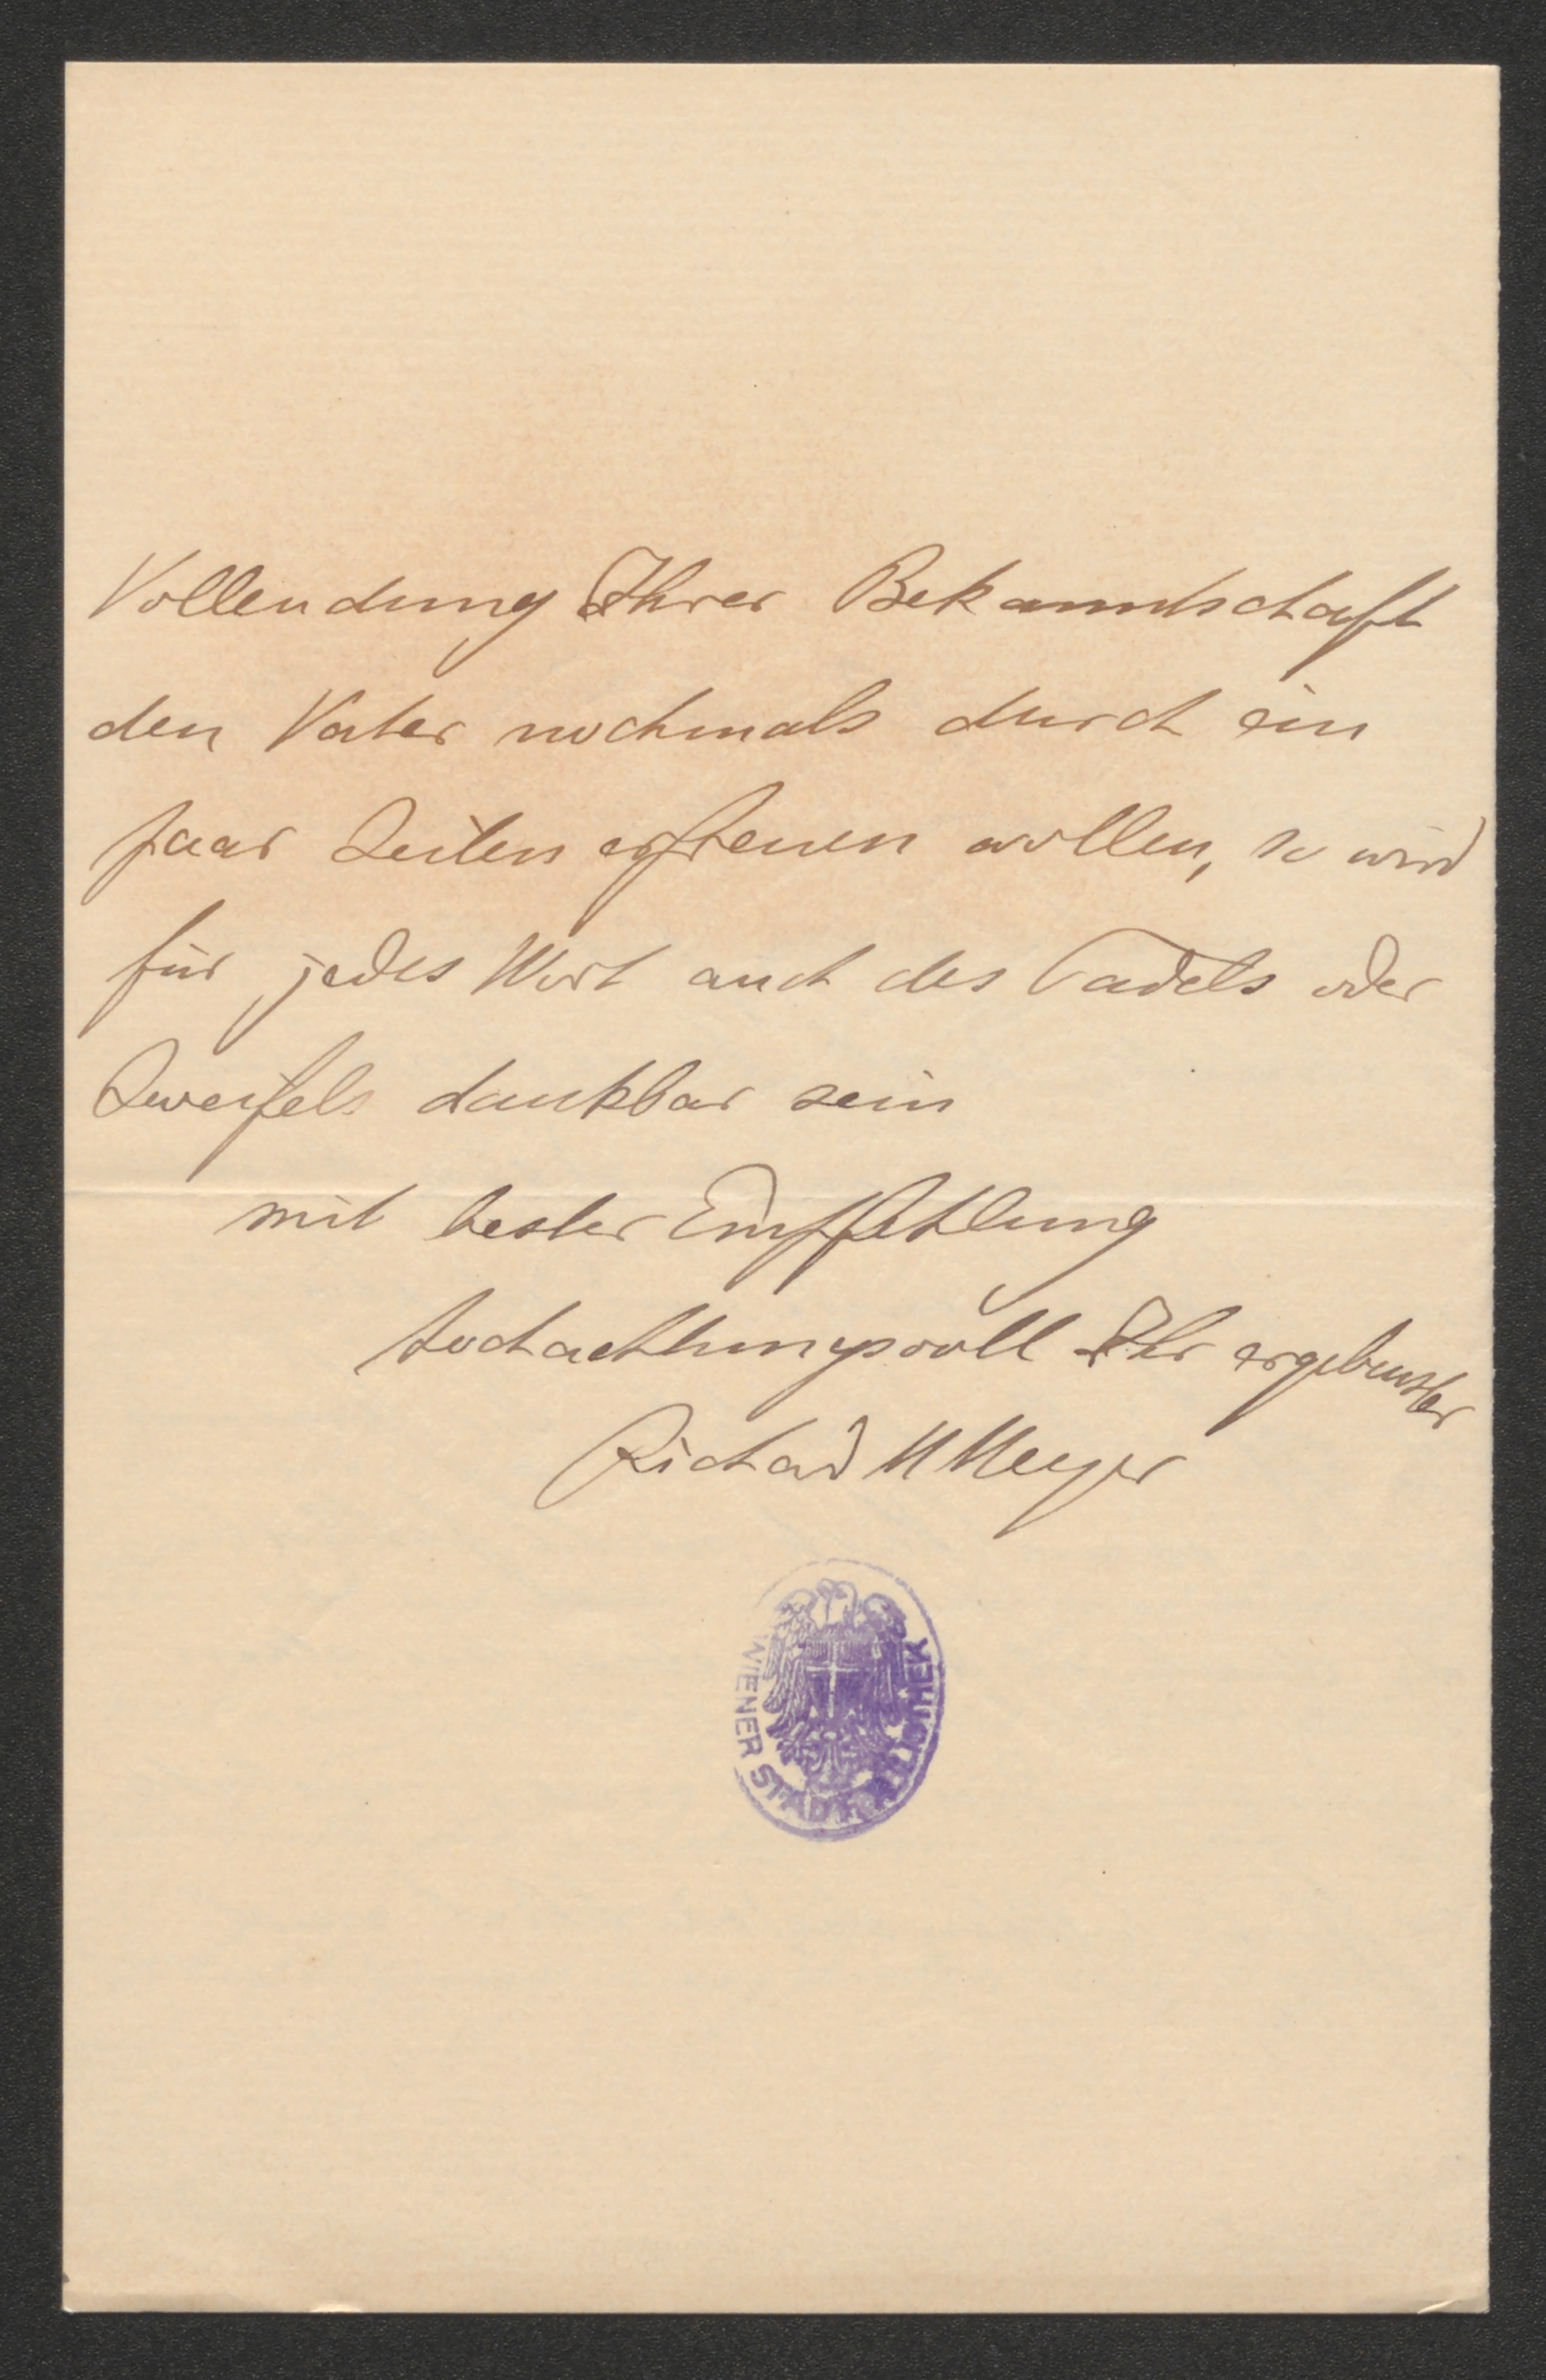 Vollendung Ihrer Bekanntschaft
den Vater nochmals durch ein
paar Zeilen erfreuen wollen, so wird
für jedes Wort auch des Tadels oder
Zweifels dankbar sein
mit bester Empfehlung
hochachtungsvoll Ihr ergebenster
Richard M Meyer
WIENER STADTBIBLIOTHEK